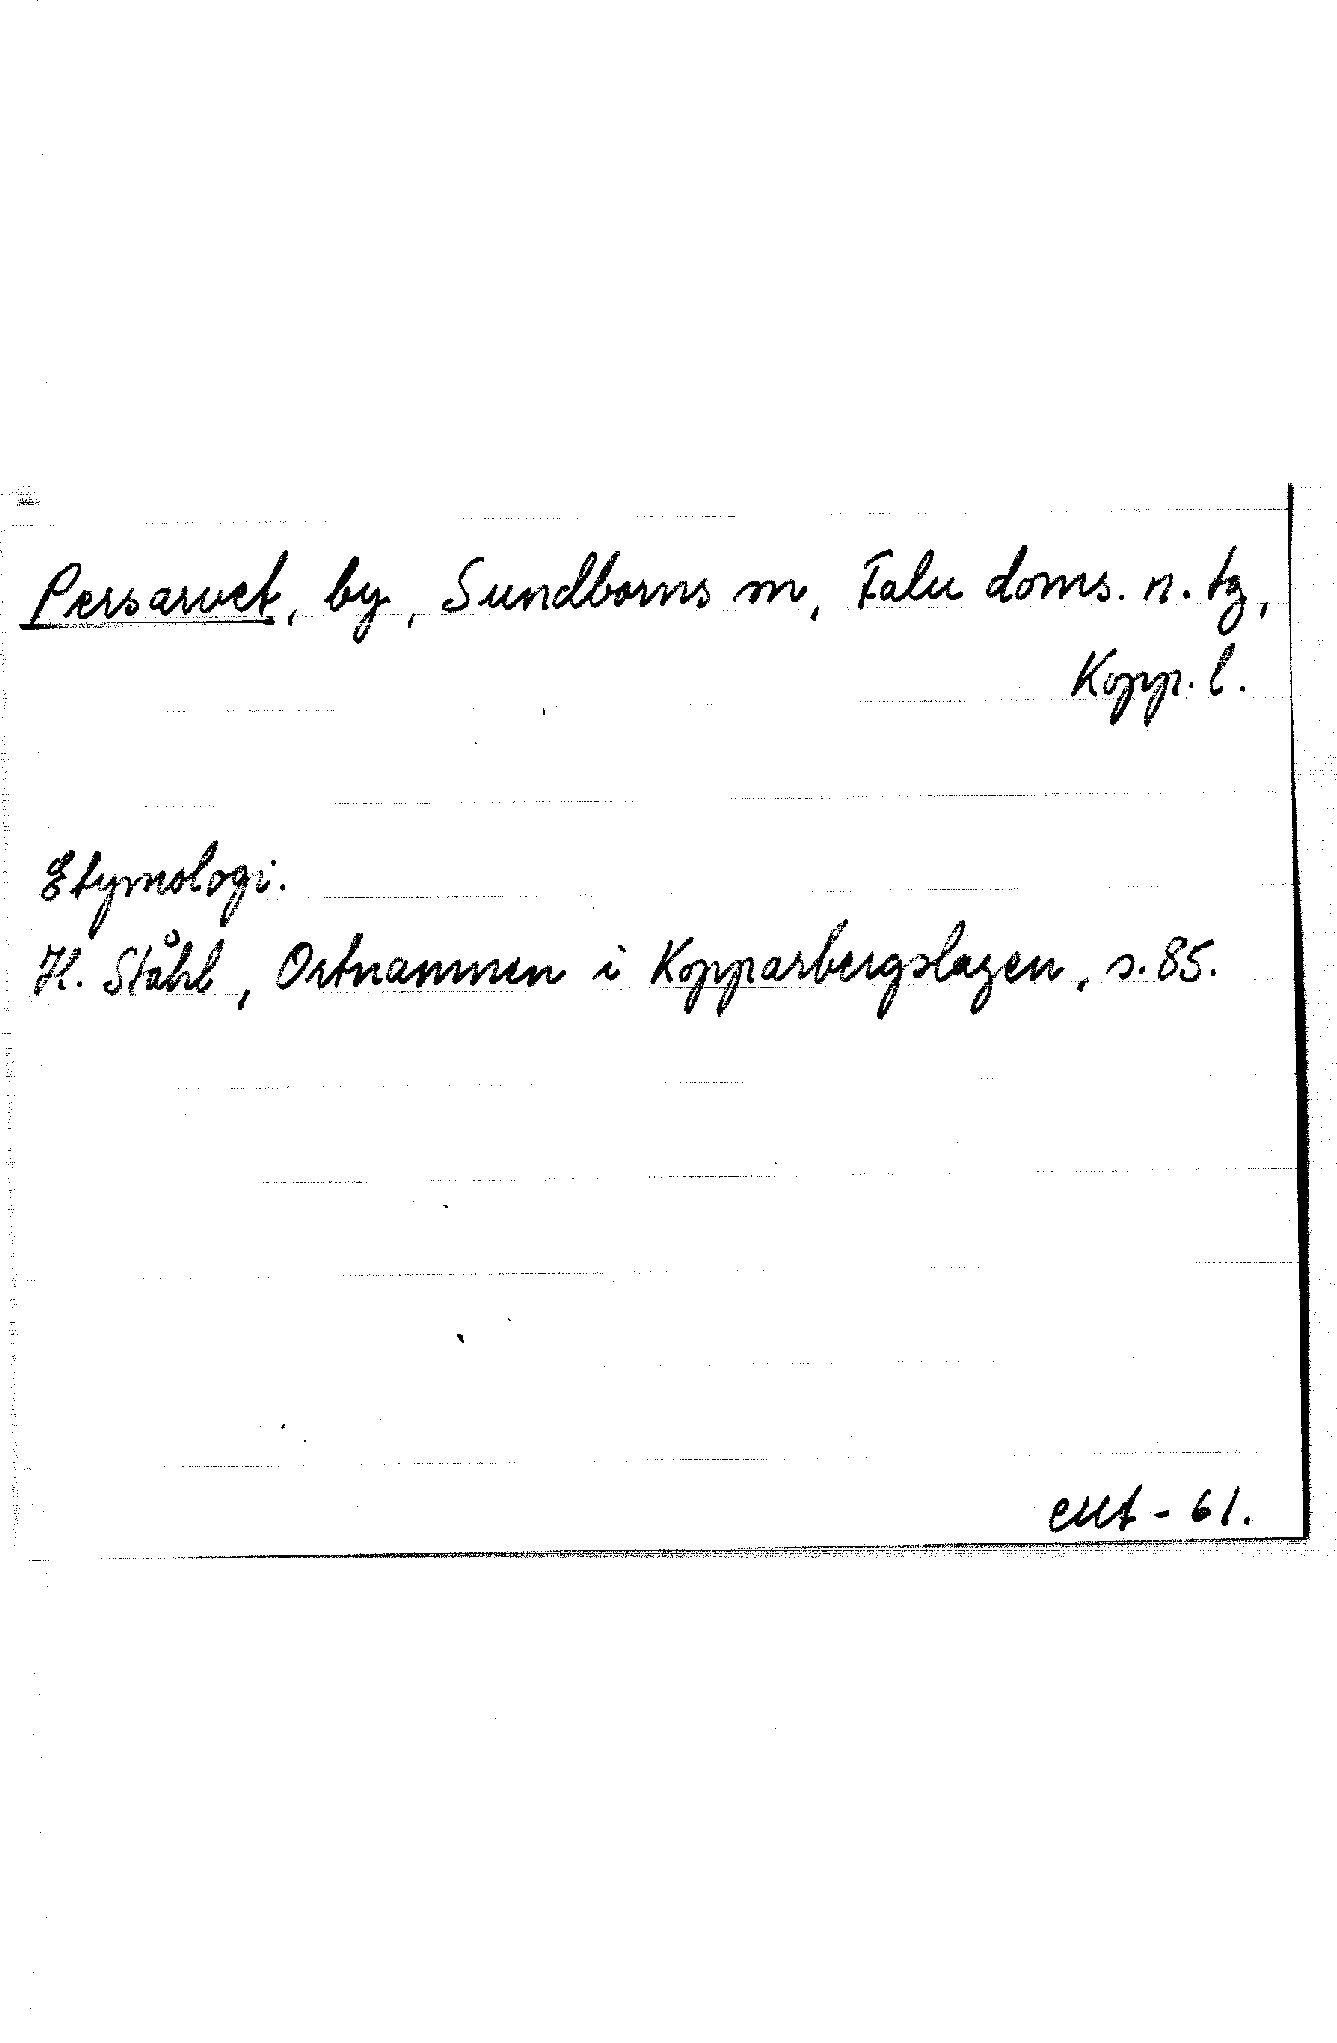 Persarvet, by, Sundborns sn, Falu doms. n. tg,
Kopp. l.
Etymologi.
H. Ståhl, Ortnamnen i Kopparbergslagen, s. 85.
- 61.